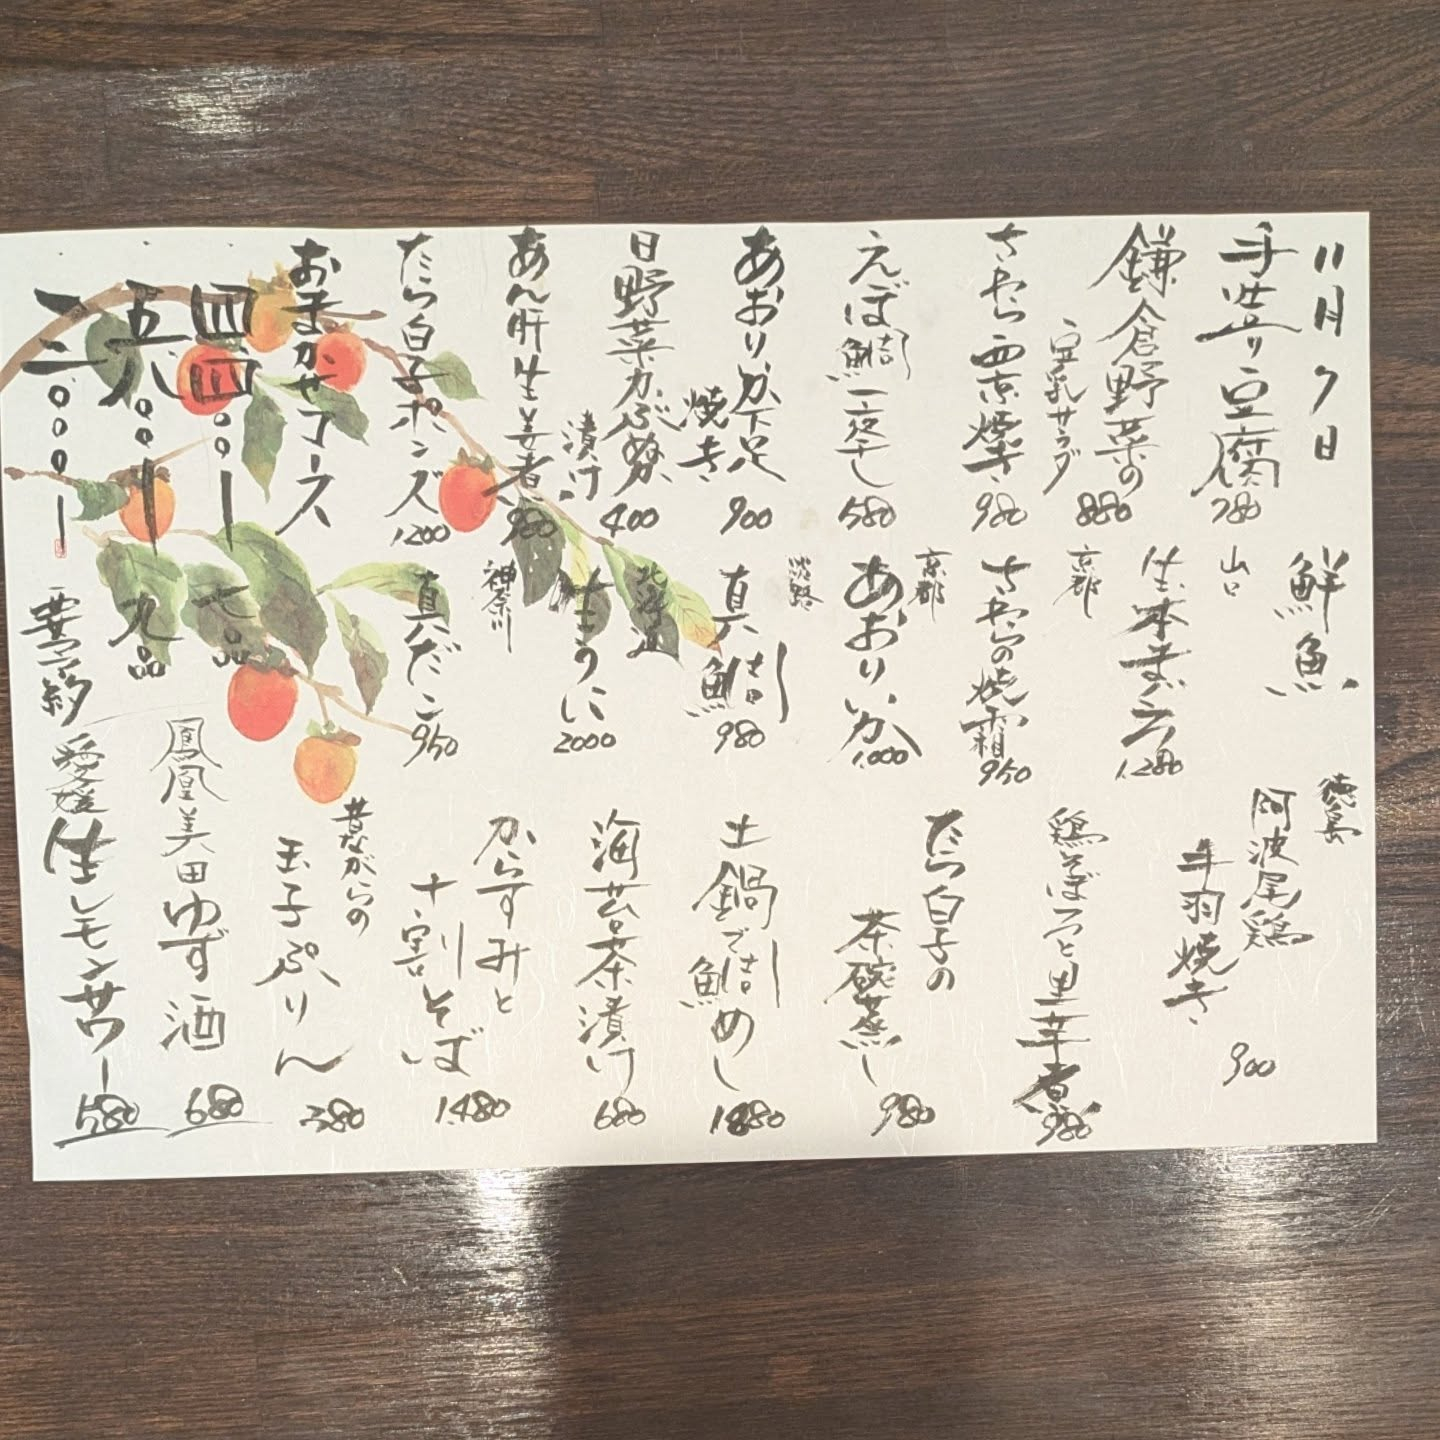 11月7日
手造り豆腐
780
鎌倉野菜の
豆乳サラダ
880
さわら西京焼き
980
えぼ鯛一夜干し
580
あおりいか下足
焼き
900
日野菜かぶぬか
漬け
400
あん肝生姜煮
980
たら白子ポンズ
1200
おまかせコース
四四〇〇ー
七品
五八〇〇ー
九品
鮮魚
山口
生本まぐろ
1.280
京都
さわらの焼霜
950
京都
あおりいか
1.000
淡路
真鯛
980
北海道
生うに
2000
神奈川
真だこ
950
徳島
阿波尾鶏
手羽焼き
900
鶏そぼろと里芋煮
980
たら白子の
茶碗蒸し
980
土鍋で鯛めし
1880
海苔茶漬け
680
からすみと
十割そば
1.480
昔ながらの
玉子ぷりん
380
鳳凰美田ゆず酒
680
愛媛
生レモンサワー
580